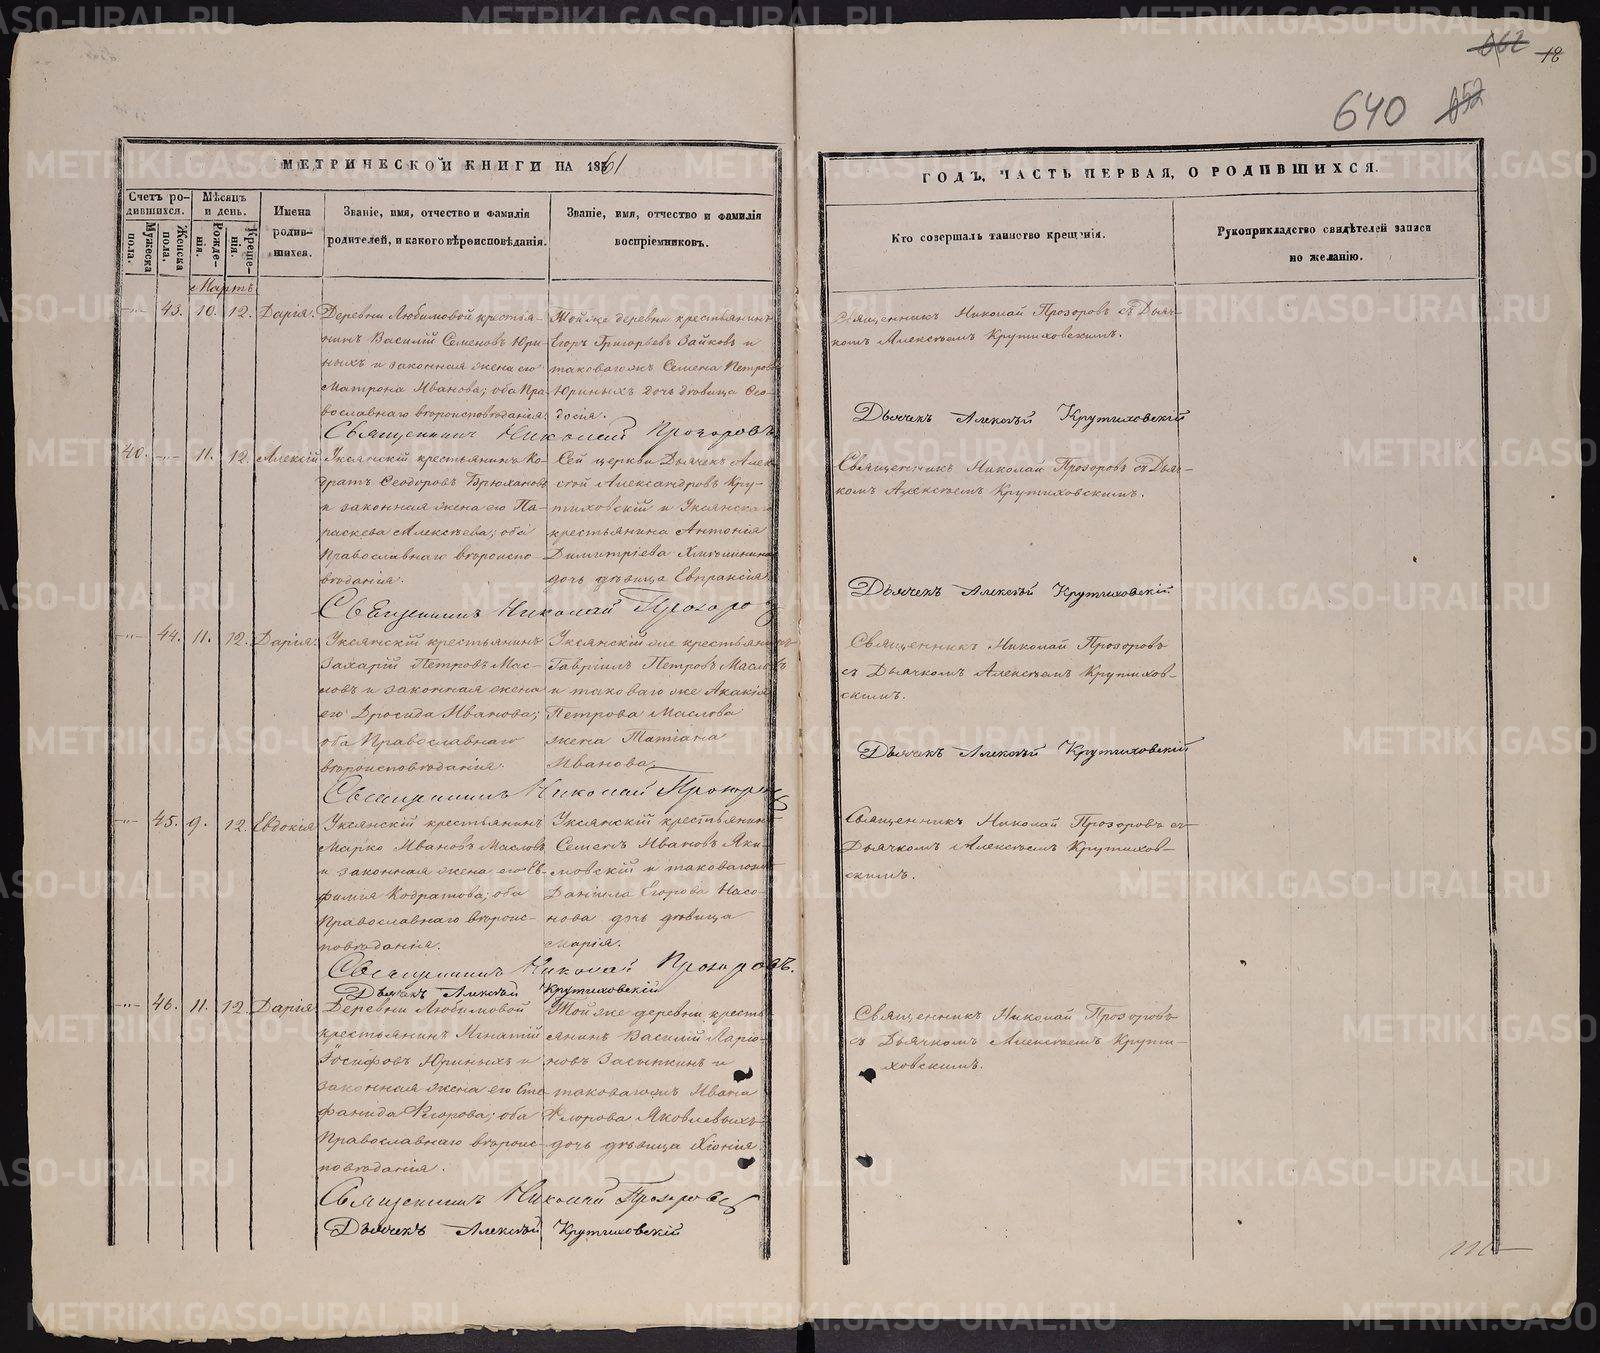 662 18
640 652
МЕТРИЧЕСКОЙ КНИГИ НА 1861
Счетъ ро-
дившихся.
Мужеска
пола.
Женска
пола.
Мѣсяцъ
и день.
Рожде-
нія.
Креще-
нія.
Имена
родив-
шихся.
Званіе, имя, отчество и фамилія
родителей, и какого вѣроисповѣданія.
Званіе, имя, отчество и фамилія
воспріемниковъ.
Мартъ.
43. 10. 12. Дарія.
Деревни Любимовой крестья-
нинъ Василій Семеновъ Юри-
ныхъ и законная жена его
Матрона Иванова; оба Пра-
вославнаго вѣроисповѣданія.
Тойже деревни крестьянинъ
Егоръ Григорьевъ Зайковъ и
таковагожъ Семена Петрова
Юриныхъ дочь дѣвица Ѳео-
досія.
Священникъ Николай Прозоровъ
40. 11. 12. Алексій
Уксянскій крестьянинъ Ко-
дратъ Ѳеодоровъ Брюхановъ
и законная жена его Па-
раскева Алексѣева; оба
Православнаго вѣроиспо-
вѣданія.
Сей церкви Дьячекъ Алек-
сѣй Александровъ Кру-
тиховскій и Уксянскаго
крестьянина Антонія
Димитріева
дочь дѣвица Евпраксія.
Священникъ Николай Прозоровъ
44. 11. 12. Дарія.
Уксянскій крестьянинъ
Захарій Петровъ Мас-
ловъ и законная жена
его Дросида Иванова;
оба Православнаго
вѣроисповѣданія.
Уксянскій же крестьянинъ
Гавріилъ Петровъ Масловъ
и таковаго же Акакія
Петрова Маслова
жена Татіана
Иванова.
Священникъ Николай Прозоровъ
45. 9. 12. Евдокія
Уксянскій крестьянинъ
Марко Ивановъ Масловъ
и законная жена его Ев-
фимія Кодратова; оба
Православнаго вѣроис-
повѣданія.
Уксянскій крестьянинъ
Семенъ Ивановъ Яки-
мовскій и таковагожъ
Даніила Егорова Насо-
нова дочь дѣвица
Марія.
Священникъ Николай Прозоровъ.
Дьячекъ Алексѣй Крутиховскій
46. 11. 12. Дарія
Деревни Любимовой
крестьянинъ Игнатій
Іосифовъ Юриныхъ и
законная жена его Сте-
фанида Флорова; оба
Православнаго вѣроис-
повѣданія.
Тойже деревни кресть-
янинъ Василій Ларіо-
новъ Засыпкинъ и
таковагожъ Ивана
Флорова Яковлевыхъ
дочь дѣвица Хіонія.
Священникъ Николай Прозоровъ
Дьячекъ Алексѣй Крутиховскій
ГОДЪ, ЧАСТЬ ПЕРВАЯ, О РОДИВШИХСЯ.
Кто совершалъ таинство крещенія.
Рукоприкладство свидѣтелей записи
по желанію.
Священникъ Николай Прозоровъ съ Дьяч-
комъ Алексѣемъ Крутиховскимъ.
Дьячекъ Алексѣй Крутиховскій
Священникъ Николай Прозоровъ съ Дьяч-
комъ Алексѣемъ Крутиховскимъ.
Дьячекъ Алексѣй Крутиховскій
Священникъ Николай Прозоровъ
съ Дьячкомъ Алексѣемъ Крутихов-
скимъ.
Дьячекъ Алексѣй Крутиховскій
Священникъ Николай Прозоровъ съ
Дьячкомъ Алексѣемъ Крутихов-
скимъ.
Священникъ Николай Прозоровъ
съ Дьячкомъ Алексѣемъ Крути-
ховскимъ.
METRIKI.GASO-URAL.RU